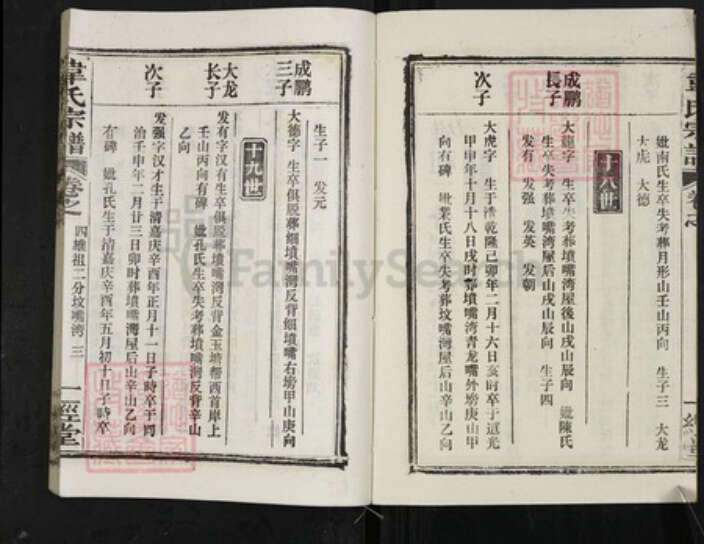 妣南氏生卒失考葬月形山壬山丙向　生子三　大龙
大虎　大德
十八世
成鹏
長子
大龍字　生卒失考葬墳嘴湾屋後山戌山辰向　妣陳氏
生卒失考葬墳嘴湾屋后山戌山辰向　生子四
发有　发强　发英　发朝
次子
大虎字　生于清乾隆己卯年二月十六日亥时卒于道光
甲申年十月十八日戌时葬墳嘴湾青龙嘴外塝庚山甲
向有碑　妣業氏生卒失考葬坟嘴灣屋后山辛山乙向
成鹏
三子
生子一　发元
大德字　生卒俱脱葬细墳嘴灣反背细墳嘴右塝甲山庚向
十九世
大龙
长子
发有字汉有生卒俱脱葬墳嘴灣反背金玉塆帮西首岸上
壬山丙向有碑　妣孔氏生卒失考葬墳嘴灣反背辛山
乙向
次子
发强字汉才生于清嘉庆辛酉年正月十一日子時卒于同
治壬申年二月廿三日卯时葬墳嘴灣屋后山辛山乙向
有碑　妣孔氏生于清嘉庆辛酉年五月初十日子時卒
韋氏宗譜
卷之
四雄祖二分坟嘴湾　三
一經堂
FamilySearch